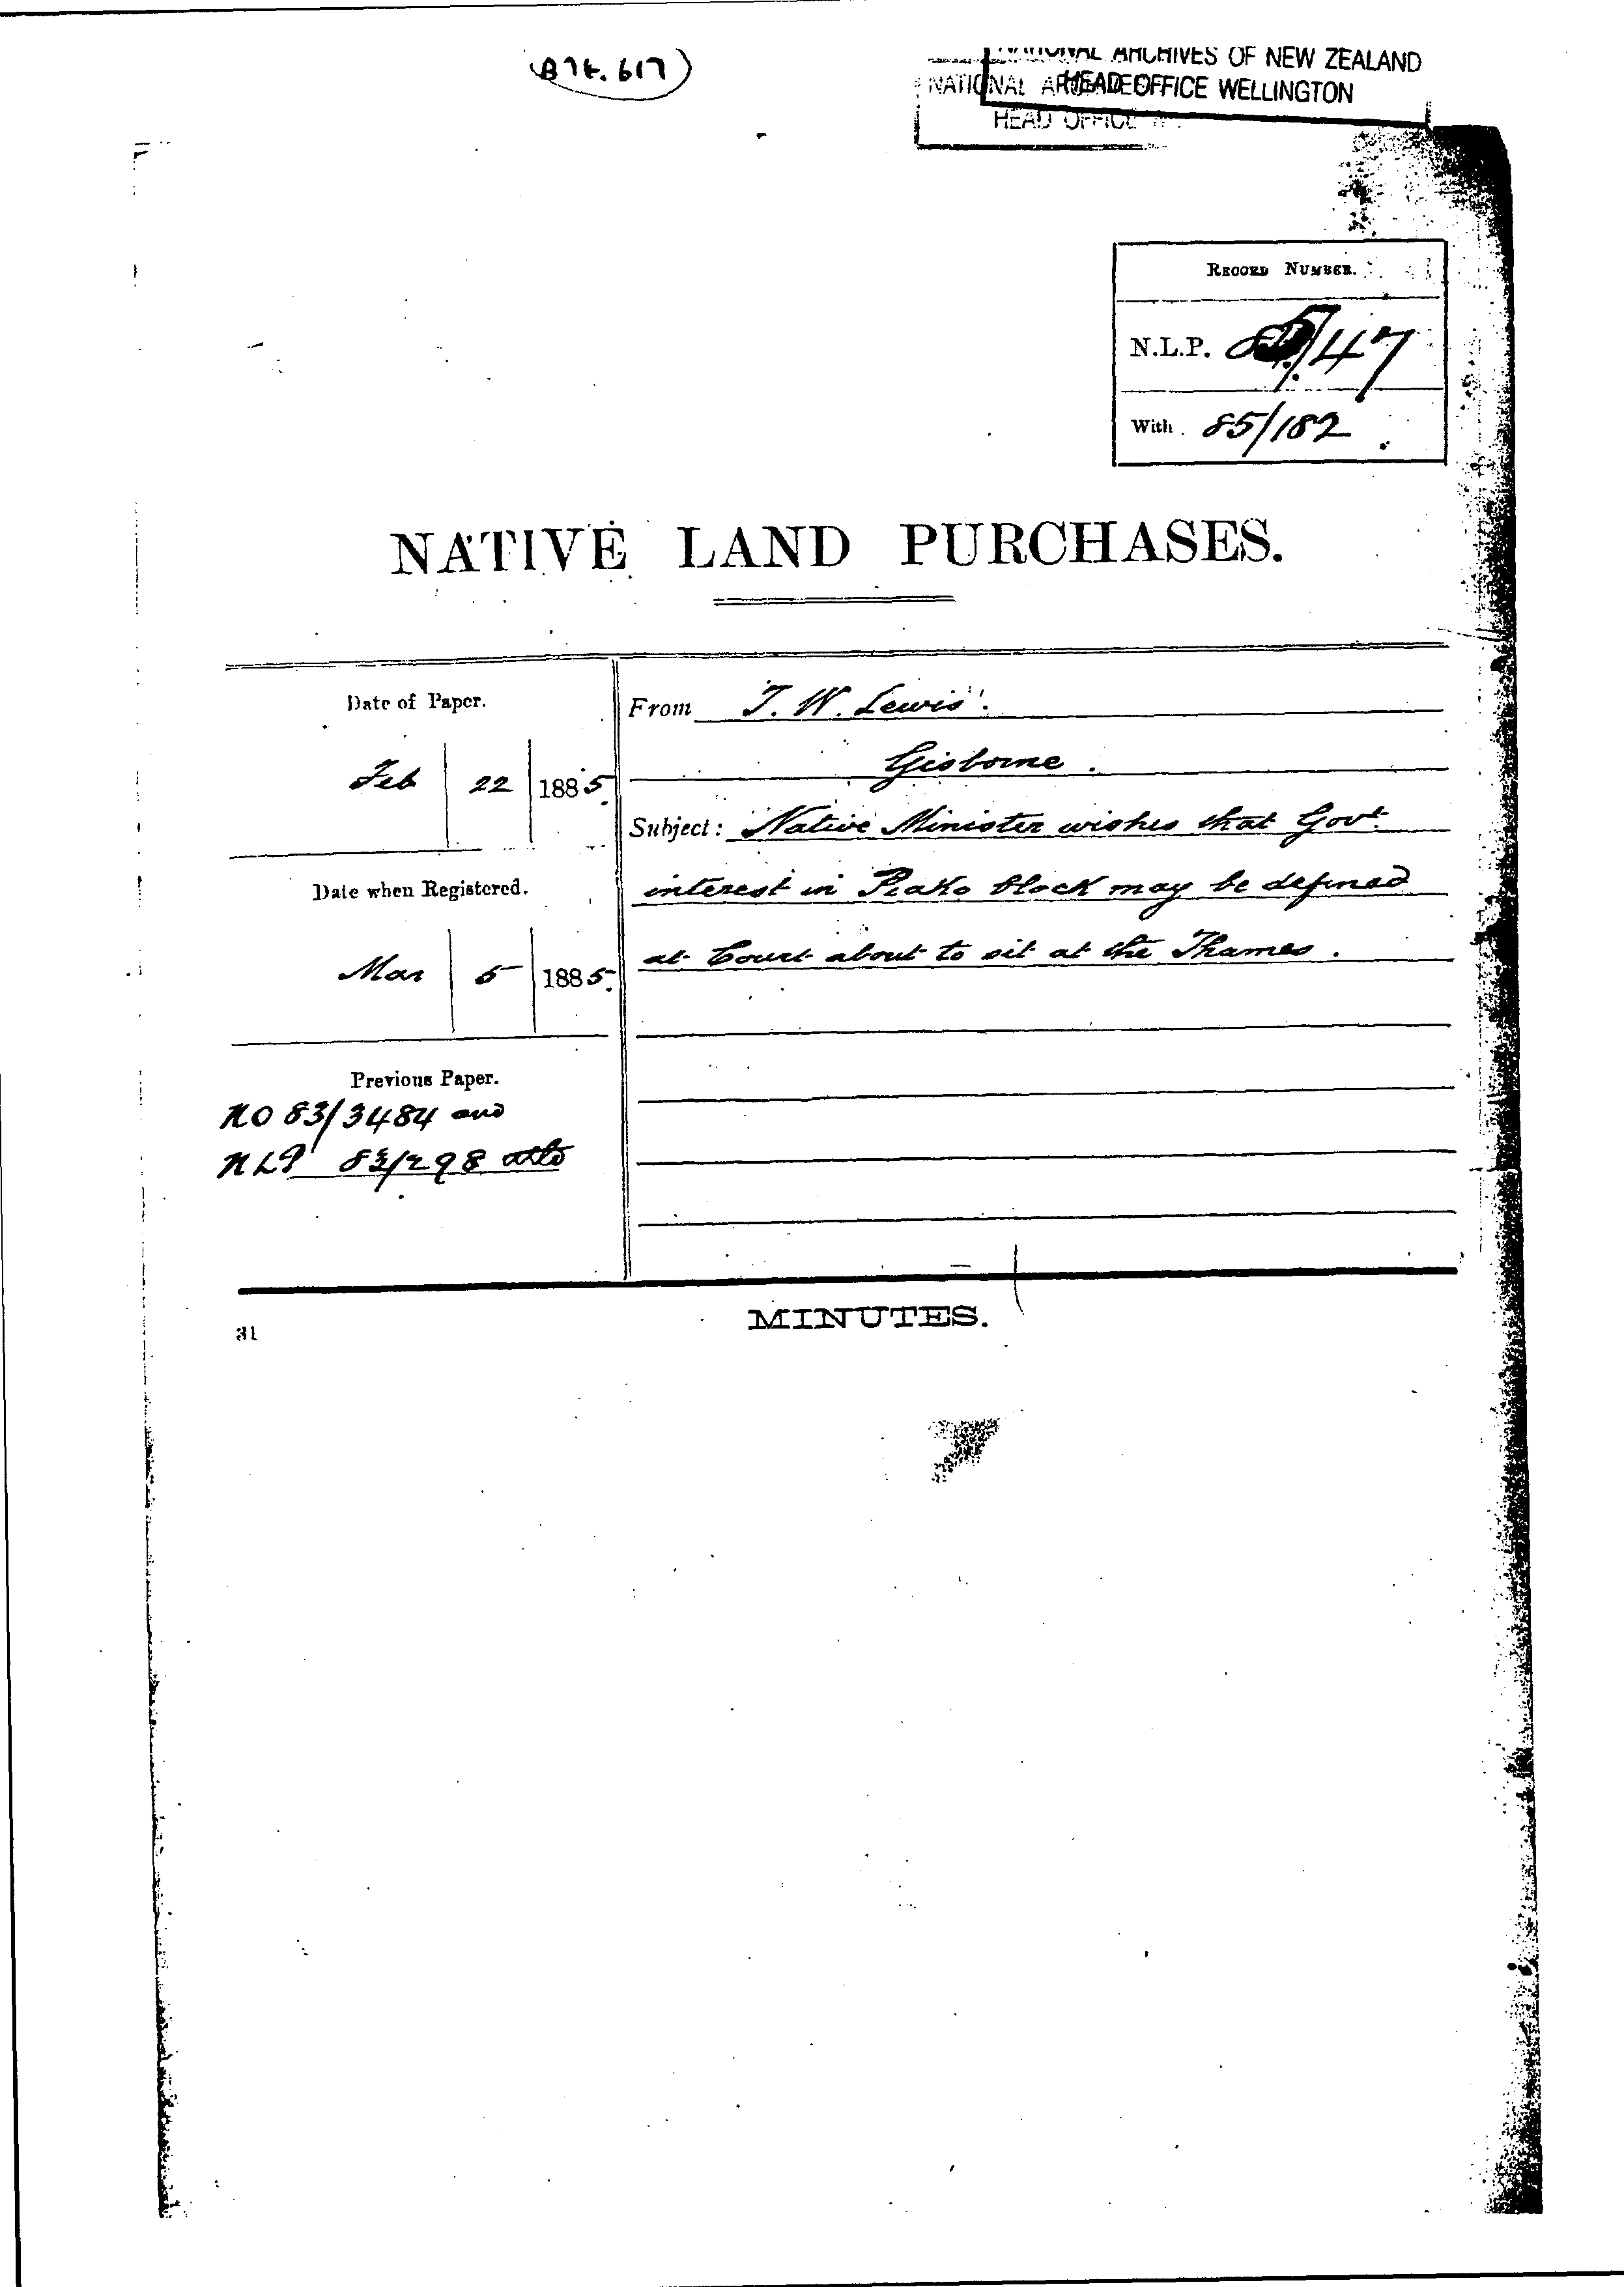 (B74.617)
NATIONAL ARCHIVES OF NEW ZEALAND
HEAD OFFICE WELLINGTON
NATIONAL
HEAD OFFICE
RECORD NUMBER.
N.L.P. 85/47
With 85/182
NATIVE LAND PURCHASES.
Date of Paper.
Feb 22 1885.
Date when Registered.
Mar 5 1885.
Previous Paper.
NO 83/3484 and
NLP 83/298 atto
From T. W. Lewis.
Gisborne.
Subject: Native Minister wishes that Govt.
interest in Piako Block may be defined
at Court about to sit at the Thames.
31
MINUTES.